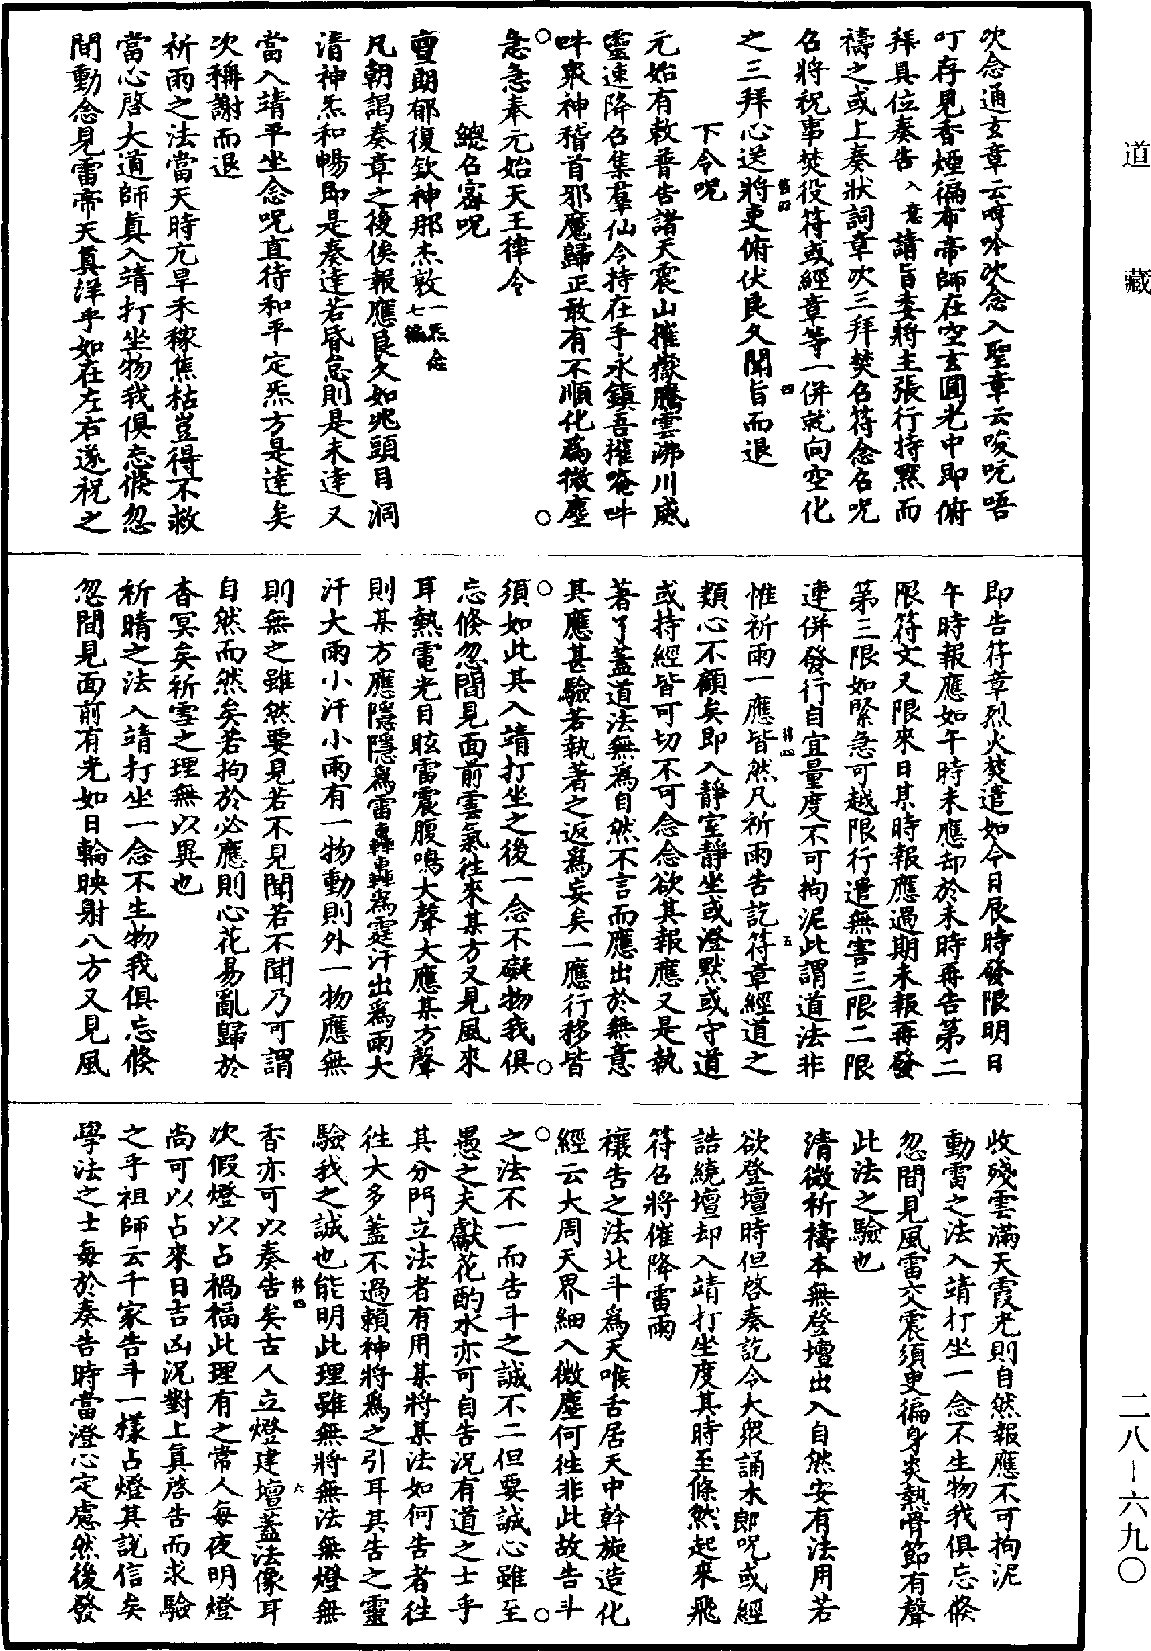 次念通玄章云哼吟次念入聖章云唆吭唔
叮存見香煙徧布帝師在空玄圓光中即俯
拜具位奏告入意請旨委將主張行持默而
禱之或上奏狀詞章次三拜焚召符念召呪
召將祝事焚役符或經章等一併就向空化
之三拜心送將吏俯伏良久聞旨而退
下令呪
元始有敕普告諸天震山摧嶽騰雲沸川威
靈速降召集羣仙令持在手永鎮吾權唵吽
吽衆神稽首邪魔歸正敢有不順化爲微塵
急急奉元始天王律令
總召密呪
亶朗郁復欽神那杰敦一炁念七徧
凡朝謁奏章之後俟報應良久如兆頭目洞
清神炁和暢即是奏達若昏怠則是未達又
當入靖平坐念呪直待和平定炁方是達矣
次稱謝而退
祈雨之法當天時亢旱禾稼焦枯豈得不救
當心啓大道師眞入靖打坐物我俱忘倐忽
間動念見雷帝天眞洋乎如在左右遂祝之
即告符章烈火焚遣如今日辰時發限明日
午時報應如午時未應却於未時再告第二
限符文又限來日某時報應過期未報再發
第三限如緊急可越限行遣無害三限二限
連併發行自宜量度不可拘泥此謂道法非
惟祈雨一應皆然凡祈雨告訖符章經道之
類心不顧矣即入靜室靜坐或澄默或守道
或持經皆可切不可念念欲其報應又是執
著了蓋道法無爲自然不言而應出於無意
其應甚驗若執著之返爲妄矣一應行移皆
須如此其入靖打坐之後一念不礙物我俱
忘倐忽間見面前雲氣往來某方又見風來
耳熱電光目眩雷震腹鳴大聲大應某方聲
則某方應隱隱爲雷轟轟爲霆汗出爲雨大
汗大雨小汗小雨有一物動則外一物應無
則無之雖然要見若不見聞若不聞乃可謂
自然而然矣若拘於必應則心花易亂歸於
杳冥矣祈雪之理無以異也
祈晴之法入靖打坐一念不生物我俱忘倐
忽間見面前有光如日輪映射八方又見風
收殘雲滿天霞光則自然報應不可拘泥
動雷之法入靖打坐一念不生物我俱忘倐
忽間見風雷交震須臾徧身炎熱骨節有聲
此法之驗也
清微祈禱本無登壇出入自然安有法用若
欲登壇時但啓奏訖令大衆誦木郎呪或經
誥繞壇却入靖打坐度其時至倐然起來飛
符召將催降雷雨
禳告之法北斗爲天喉舌居天中斡旋造化
經云大周天界細入微塵何往非此故告斗
之法不一而告斗之誠不二但要誠心雖至
愚之夫獻花酌水亦可自告況有道之士乎
其分門立法者有用某將某法如何告者往
往大多蓋不過賴神將爲之引耳其告之靈
驗我之誠也能明此理雖無將無法無燈無
香亦可以奏告矣古人立燈建壇蓋法像耳
次假燈以占禍福此理有之常人每夜明燈
尚可以占來日吉凶況對上眞啓告而求驗
之乎祖師云千家告斗一樣占燈其説信矣
學法之士每於奏告時當澄心定慮然後發
道藏
二八-六九〇